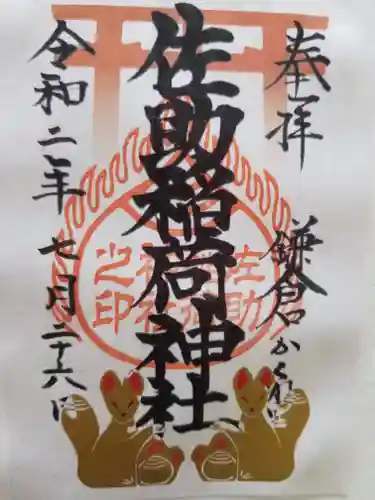 奉拝
鎌倉かくれ里
佐助稲荷神社
令和二年七月二十六日
佐助
稲荷
神社
之印